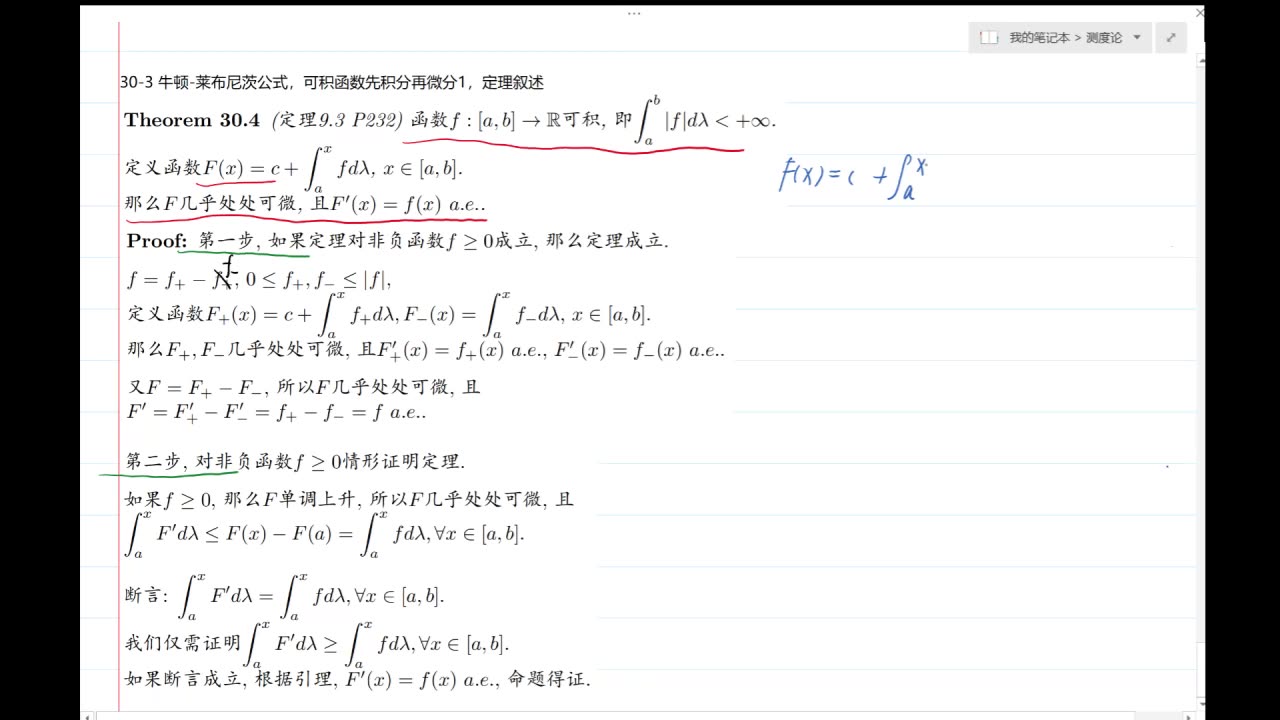 我的笔记本 > 测度论
30-3 牛顿-莱布尼茨公式，可积函数先积分再微分1，定理叙述
Theorem 30.4 (定理9.3 P232) 函数 f : [a, b] → ℝ可积, 即 ∫_a^b |f|dλ < +∞.
定义函数F(x) = c + ∫_a^x fdλ, x ∈ [a, b].
f(x) = c + ∫_a^x
那么F几乎处处可微, 且F′(x) = f(x) a.e..
Proof: 第一步, 如果定理对非负函数f ≥ 0成立, 那么定理成立.
f = f₊ − f₋, 0 ≤ f₊, f₋ ≤ |f|,
定义函数F₊(x) = c + ∫_a^x f₊dλ, F₋(x) = ∫_a^x f₋dλ, x ∈ [a, b].
那么F₊, F₋几乎处处可微, 且F′₊(x) = f₊(x) a.e., F′₋(x) = f₋(x) a.e..
又F = F₊ − F₋, 所以F几乎处处可微, 且
F′ = F′₊ − F′₋ = f₊ − f₋ = f a.e..
第二步, 对非负函数f ≥ 0情形证明定理.
如果f ≥ 0, 那么F单调上升, 所以F几乎处处可微, 且
∫_a^x F′dλ ≤ F(x) − F(a) = ∫_a^x fdλ, ∀x ∈ [a, b].
断言: ∫_a^x F′dλ = ∫_a^x fdλ, ∀x ∈ [a, b].
我们仅需证明∫_a^x F′dλ ≥ ∫_a^x fdλ, ∀x ∈ [a, b].
如果断言成立, 根据引理, F′(x) = f(x) a.e., 命题得证.